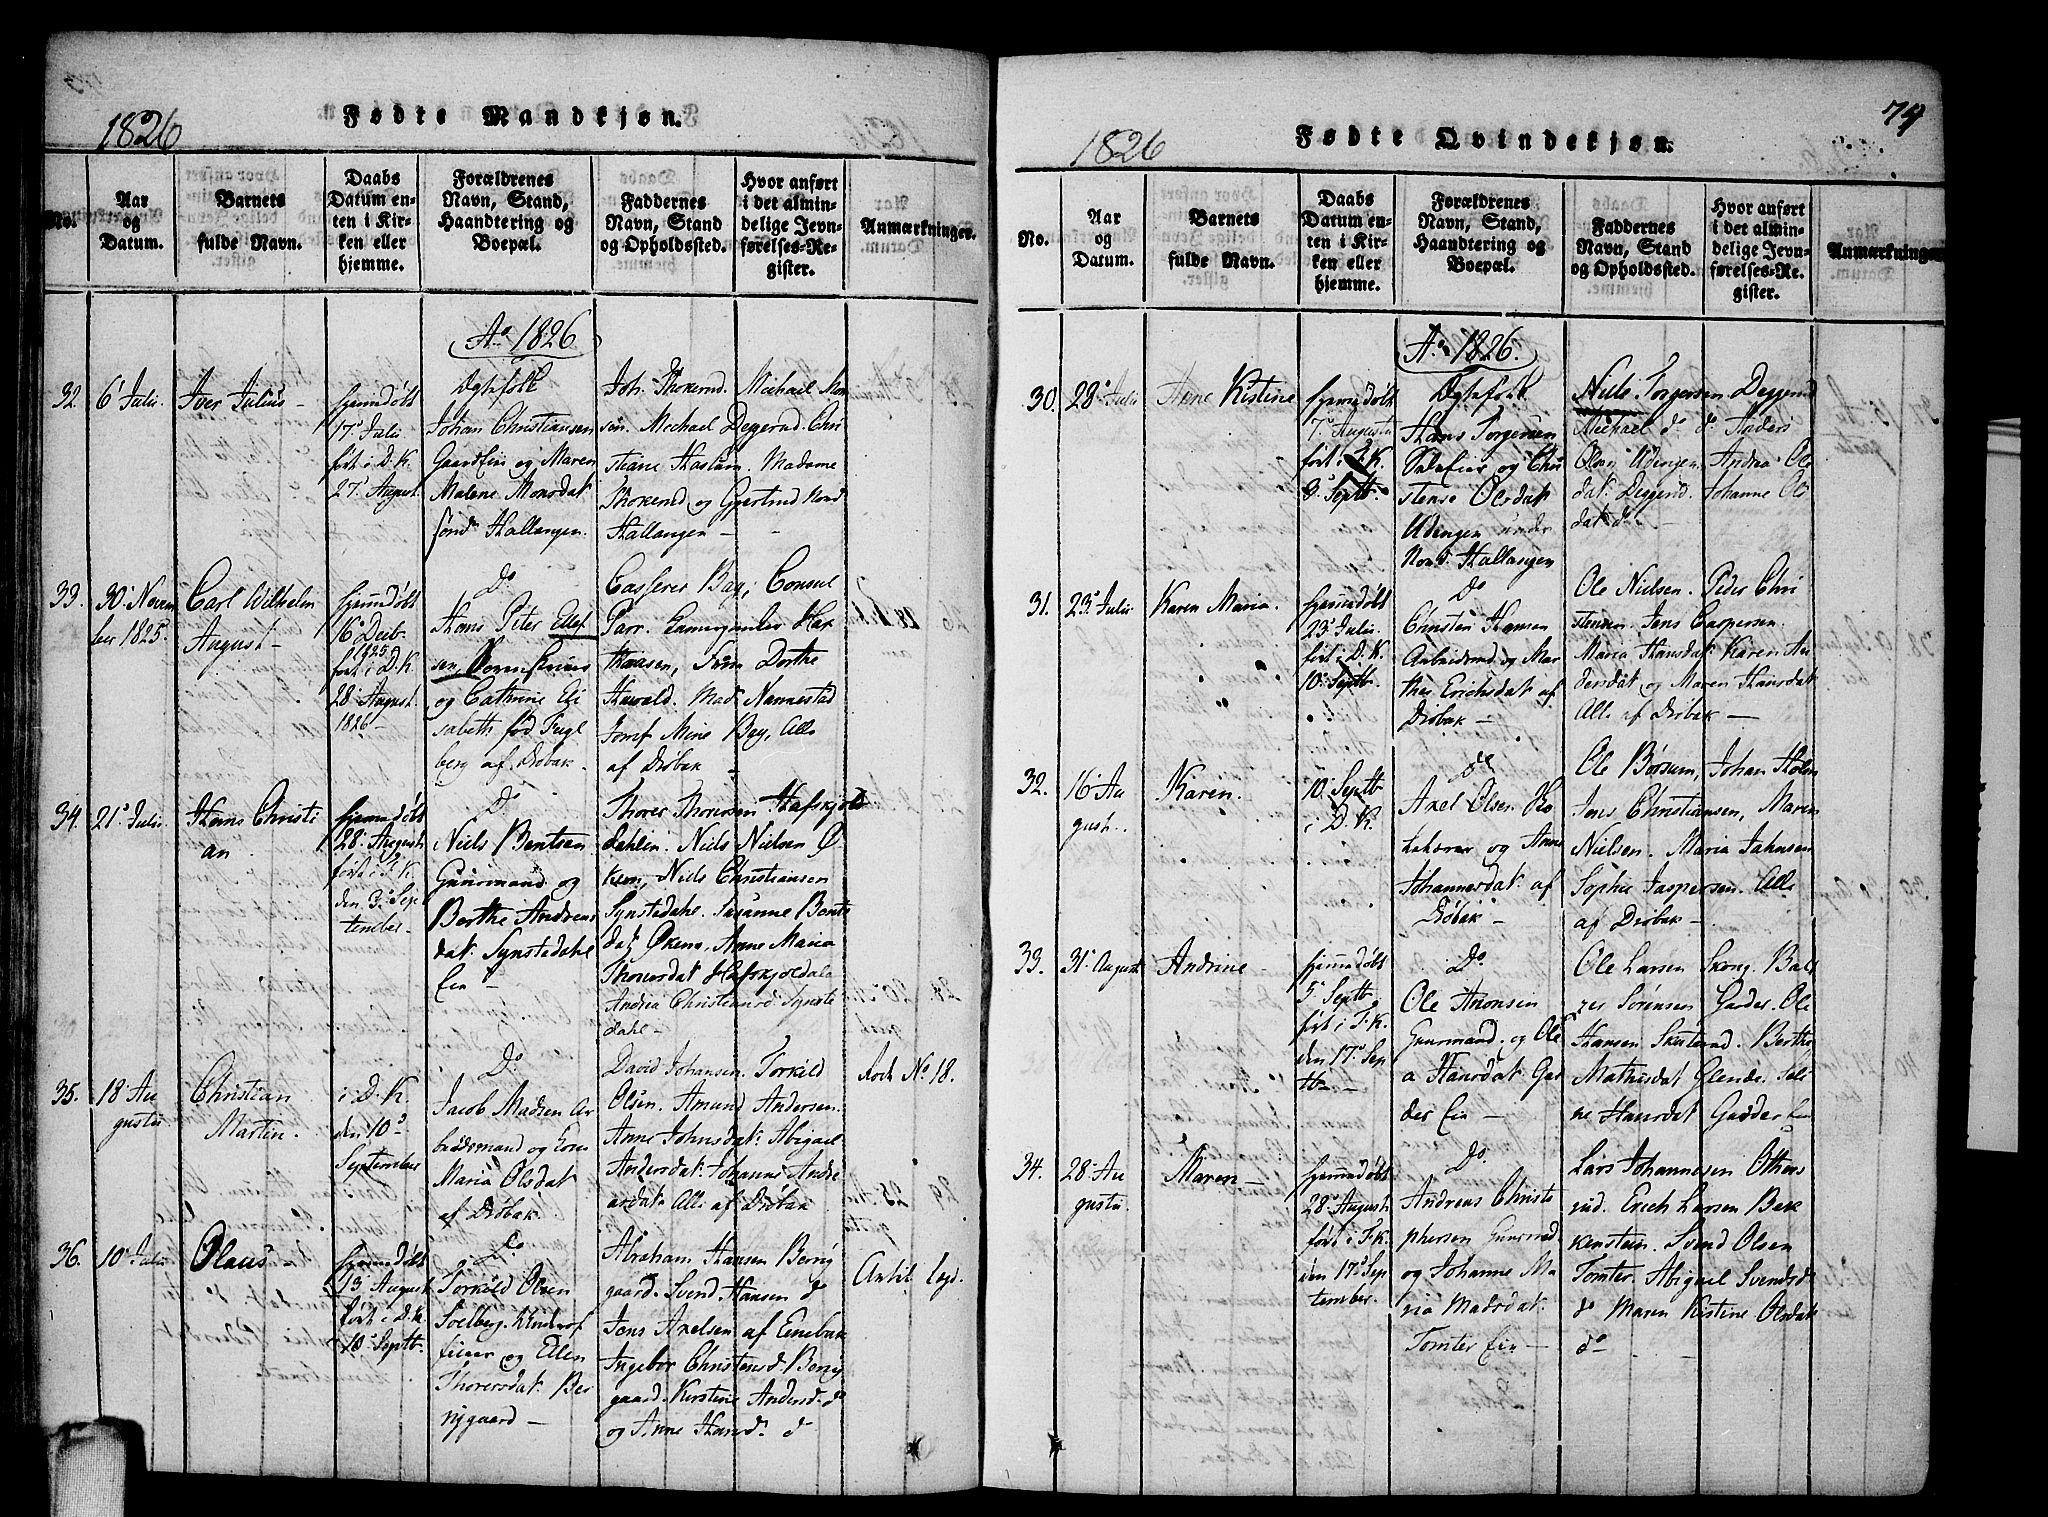 1826
Fødte Mandkjøn.
No.
Aar
og
Datum.
Barnets
fulde Navn.
Daabs
Datum en-
ten i Kir-
ken eller
hjemme.
Forældrenes
Navn, Stand,
Haandtering og
Boepæl.
Faddernes
Navn, Stand
og Opholdssted.
Hvor anført
i det almin-
delige Jevn-
førelses-Re-
gister.
Anmærkninger.
Ao 1826
32.
6 Julii.
Iver Julius
hjemmedøbt
17 Julii
ført i D.K.
27 August
Ægtefolk
Johan Christiansen
og Maren
Malene Monsdat
Hallangen.
Joh. Michael Mon
sen. Michael Degerud. Chri
stiane Haslum. Madame
og Gjertrud Nord
Hallangen
33.
30 Novem
ber 1825.
Carl Wilhelm
August
hjemmedøbt
16 Decb.
1825
ført i D.K.
28 August
1826
Do
Hans Peter Ellef
sen,
og Cathrine Eli
sabeth fød Fugl
berg af Drøbak
Casserer Bay, Consul
Parr. Har
Dorthe
Hawald. Mad Nannestad
Jomf Mine Bay, Alle
af Drøbak
34.
21 Julii
Hans Christi
an
hjemmedøbt
28 August
ført i F.K.
den 3 Sep
tember
Do
Niels Bentsen
Gaardmand og
Berthe Andreas
dat. Synstedahl
Eie
Thorer Thoresen Hafskjold
dahlen. Niels Nielsen Ø
kern, Niels Christiansen
Synstedahl. Susanne Bents
dat Økern, Anne Maria
Thoresdat Hafskjoldals
Andrea Christiansd Synste
dahl
35.
18 Au
gusti
Christian
Martin.
i D.K.
den 10
September
Do
Jacob Madsen Ar
beidsmand og
Maria Olsdat
af Drøbak
David Johansen. Torkild
Olsen. Amund Andersen.
Anne Johnsdat. Abigael
Andersdat. Johanne Andre
asdat Alle af Drøbak
Rode No 18.
36.
10 Julii
Olaus
hjemmedøbt
13 August
ført i D.K.
10 Septb.
Do
Torkild Olsen
Solberg
og Ellen
Thoresdat. Ber
riggaard
Abraham Hansen Berrig
gaard. Svend Hansen do
Jens Axelsen af Enebak
Ingebor Christensd. Berrig
gaard. Kirstine Andersd. do
og Anne Hansd. do
1826
Fødte Qvindekjøn.
74
No.
Aar
og
Datum.
Barnets
fulde Navn.
Daabs
Datum en-
ten i Kir-
ken eller
hjemme.
Forældrenes
Navn, Stand,
Haandtering og
Boepæl.
Faddernes
Navn, Stand
og Opholdssted.
Hvor anført
i det almin-
delige Jevn-
førelses-Re-
gister.
Anmærkninger
Ao 1826.
30.
28 Julii
Anne Kistine
hjemmedøbt
7 Augusti
ført i F.K.
3 Septb.
Ægtefolk
Hans Torgersen
og Chri
stense Olsdat
Udengen under
Nord Hallangen
Niels Torgersen Deggerud
Michael do do Anders
Olsen Udengen. Andrea Ols
dat. Deggerud. Johanne Ols
dat do
31.
23 Julii
Karen Maria.
hjemmedøbt
23 Julii.
ført i D.K.
10 Septb.
Do
Christen Hansen
Arbeidsmd og Mar
the Erichsdat af
Drøbak
Ole Nielsen. Peder Chri
stensen. Jens Caspersen.
Maria Hansdat. Karen An
dersdat og Maren Hansdat
Alle af Drøbak
32.
16 Au
gust.
Karen.
10 Septb
i D.K.
Do
Axel Olsen
og Anne
Johannesdat. af
Drøbak
Ole Børsum, Johan Holm
Jens Christiansen, Maren
Nielsen. Maria Jahnsen
Sophie Jaspersen. Alle
af Drøbak
33.
31 August
Andrine
hjemmedøbt
5 Septb
ført i F.K.
den 17 Sep
tb
Do
Ole Aronsen
Gaardmand. og Ole
a Hansdat Gar
der Eie
Ole Larsen Skong. Balt
zer Sørensen Garder. Ole
Hansen Skuterud. Berthe
Mathisdat Glende. Seli
ne Hansdat Garder Eie
34.
28 Au
gusti
Maren
hjemmedøbt
28 August
ført i F.K.
den 17 Sep
tember.
Do
Andreas Christo
phersen
og Johanne Ma
ria Madsdat.
Tomter Eie
Lars Johannesen Others
rud. Erich Larsen Bak
kerstein. Svend Olsen
Tomter, Abigael Svendsd
do Maren Kistine Olsdat
do